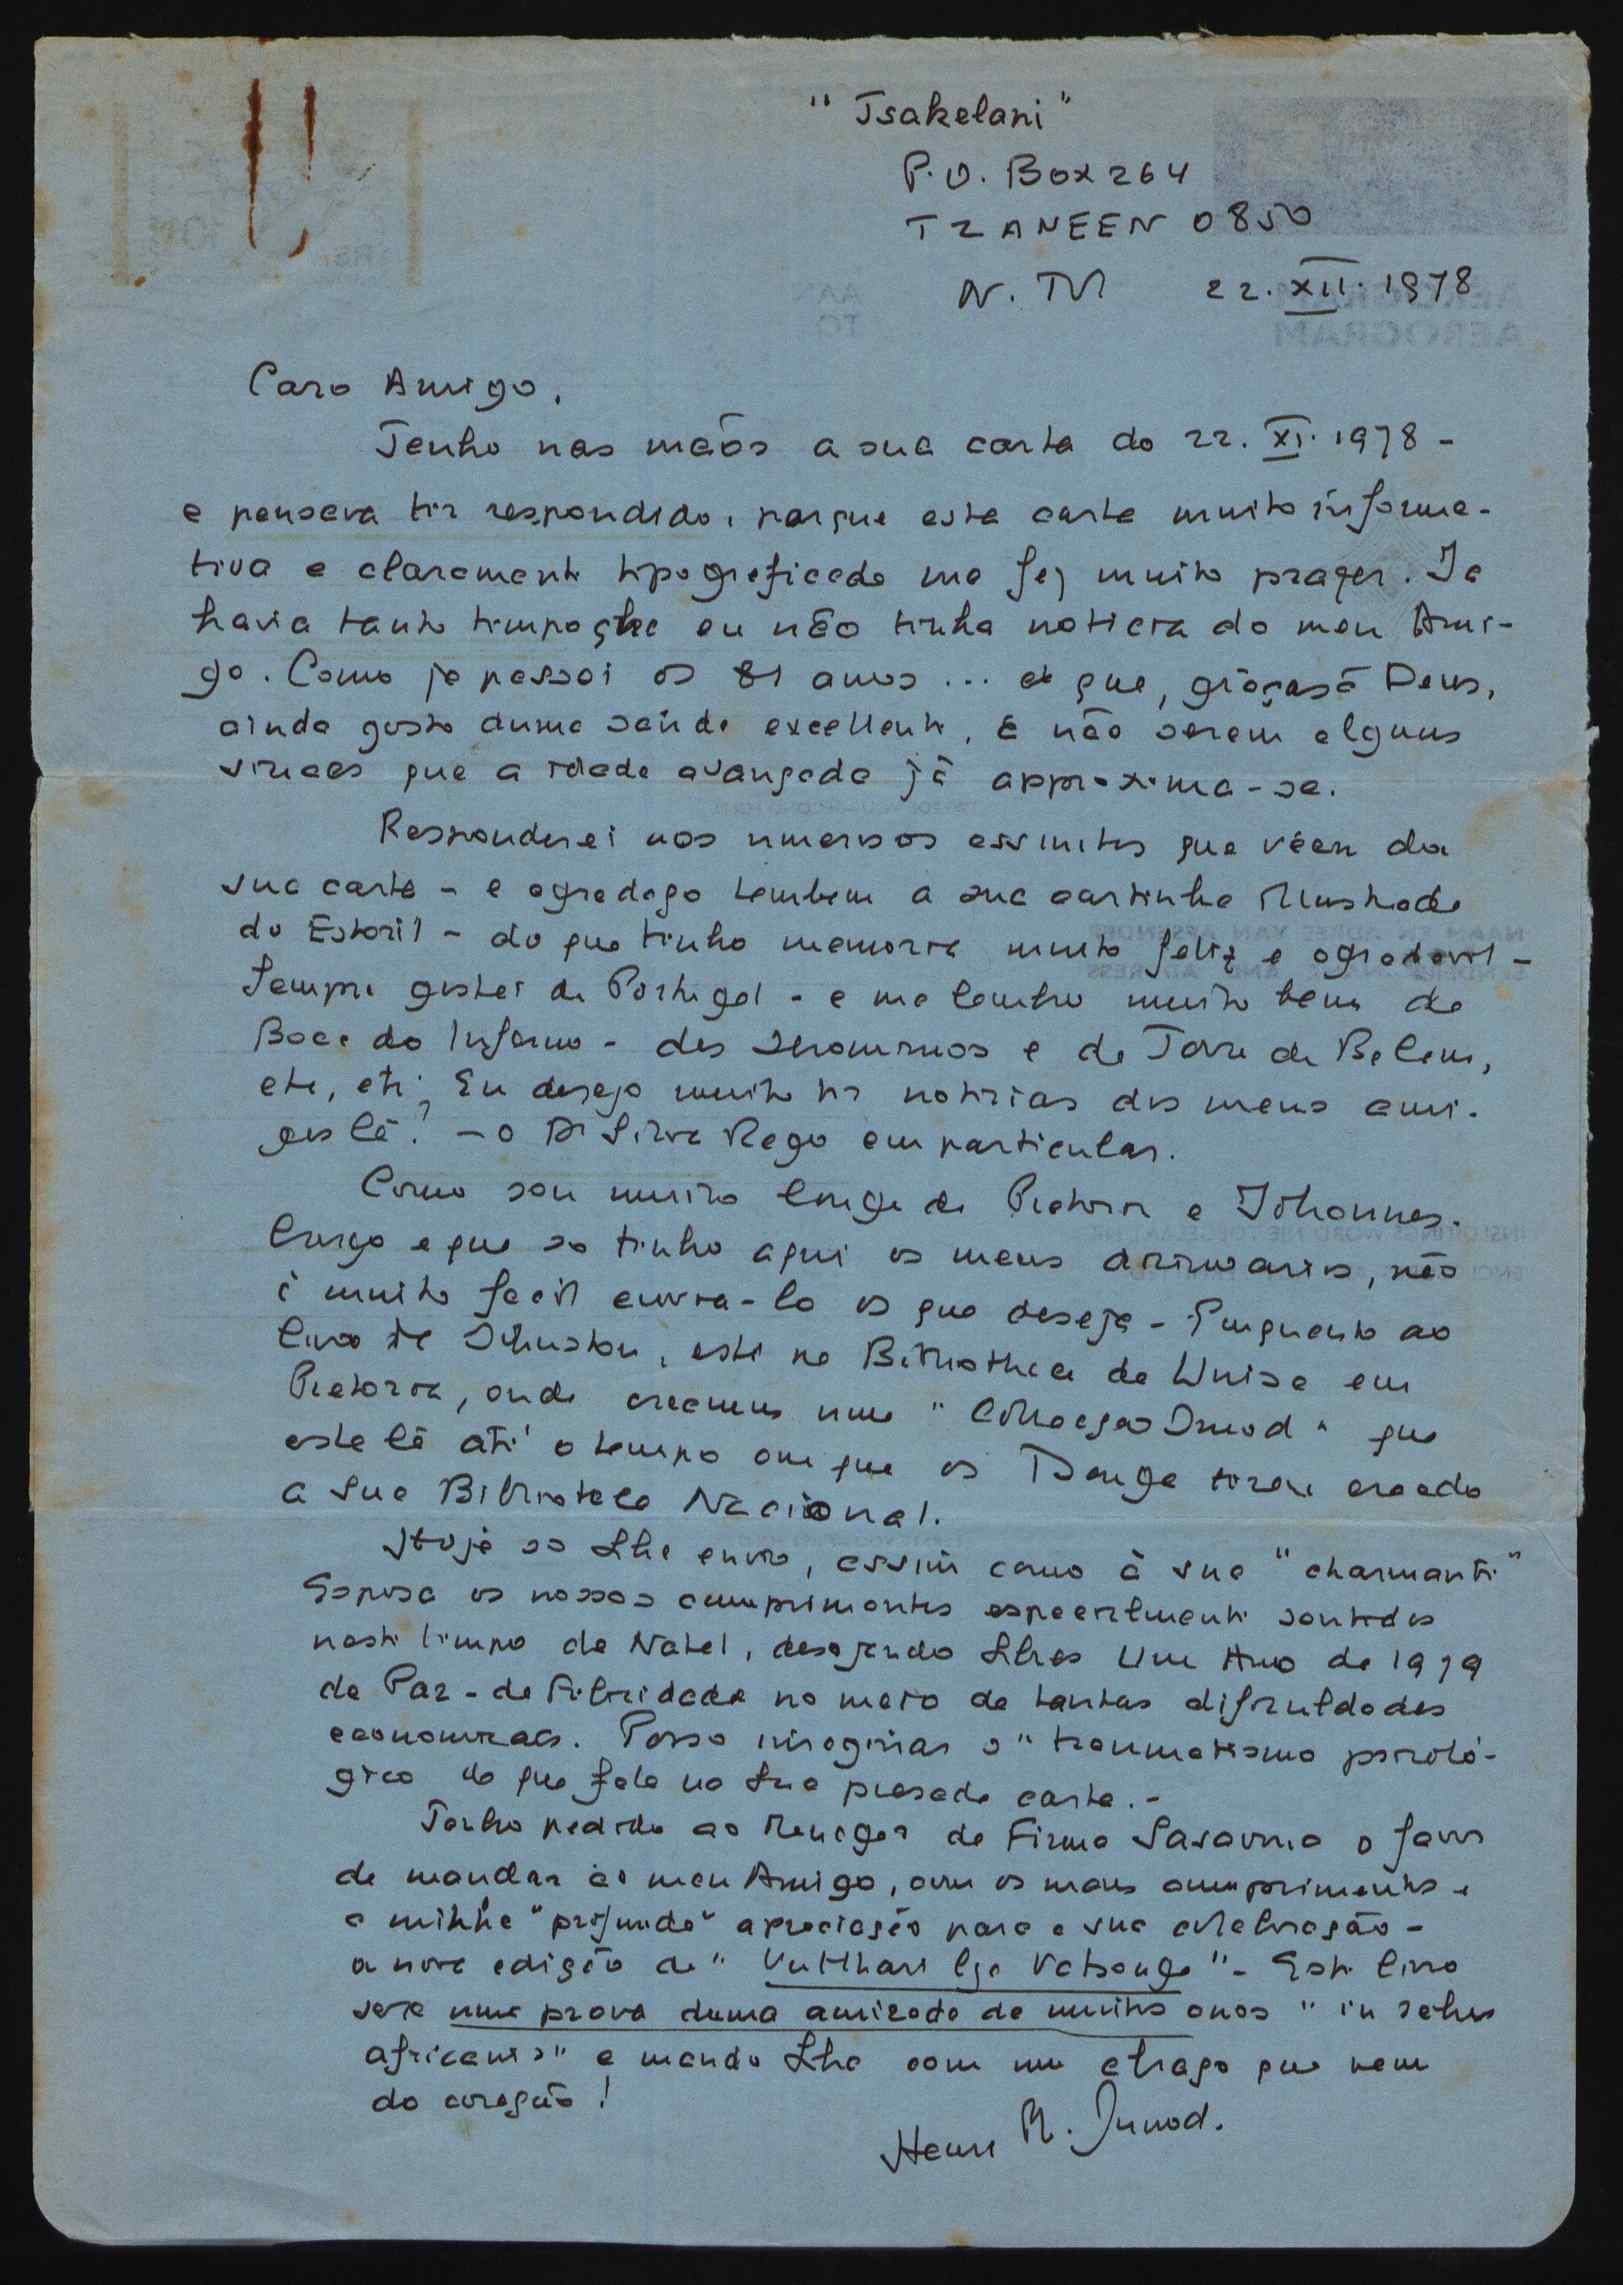 "Tsakelani"
P.O. Box 264
TZANEEN 0850
N. Tvl 22. XII. 1978
Caro Amigo,
Tenho nas mãos a sua carta do 22. XI. 1978 -
e pensava ter respondido, porque esta carta muito informa-
tiva e claramente tipograficada me fez muito prazer. Ja
havia tanto tempo que eu não tinha noticia do meu Ami-
go. Como ja passei os 81 anos ... e que, graças à Deus,
ainda gosto duma saúde excellente, e não serem alguns
sinaes que a idade avançada já approxima-se.
Responderei aos numerosos assuntos que vêem da
sua carta - e agradeço tambem a sua cartinha illustrada
do Estoril - do que tinha memoria muito feliz e agradavel -
Sempre gostei de Portugal - e me lembro muito bem da
Boca do Inferno - dos Jeronimos e da Torre de Belem,
etc, etc; Eu desejo muito ter noticias dos meus ami-
gos lá! - o Dr Silva Rego em particular.
Como sou muito longe de Pretoria e Johannes-
burgo e que so tinho aqui os meus , não
é muito facil envia-lo os que deseja - Emquanto ao
livro de Johnston, está na Bibliotheca da Unisa em
Pretoria, onde creamos uma "Collecção Junod" que
esta lá até o tempo em que os Tsonga terem creado
a sua Biblioteca Nacional.
Hoje so Lhe envio, assim como à sua "charmante"
Esposa os nossos cumprimentos especialmente sentidos
neste tempo de Natal, desejando Lhes Um Ano de 1979
de Paz - de Felicidade no meio de tantas dificuldades
economicas. Posso imaginar o "traumatismo psicoló-
gico de que fala na sua presada carta. -
Tenho pedido ao Maneger da Firma Sasavona o favor
de mandar ao meu Amigo, com os meus cumprimentos e
a minha "profunda" apreciação para a sua collaboração -
a nova edição de "Vutlhari bya Vatsonga" - Este livro
sera uma prova duma amizade de muitos anos "in rebus
africanis" e mando Lhe com um abraço que vem
do coração!
Henri P. Junod.